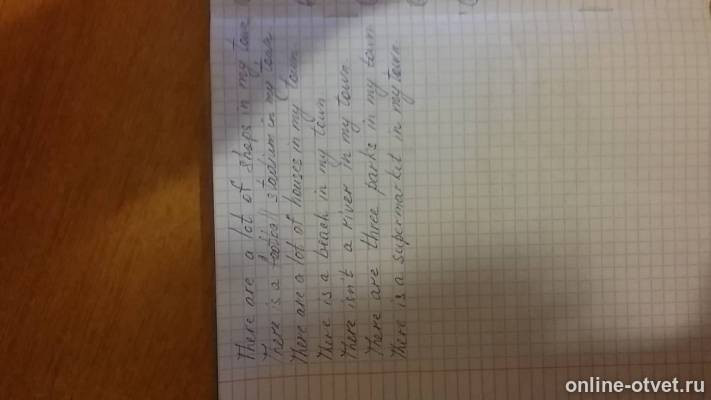 There are a lot of shops in my town
There is a stadium in my town
There are a lot of houses in my town
There is a beach in my town
There isn't a river in my town
There are three parks in my town
There is a supermarket in my town
online-otvet.ru